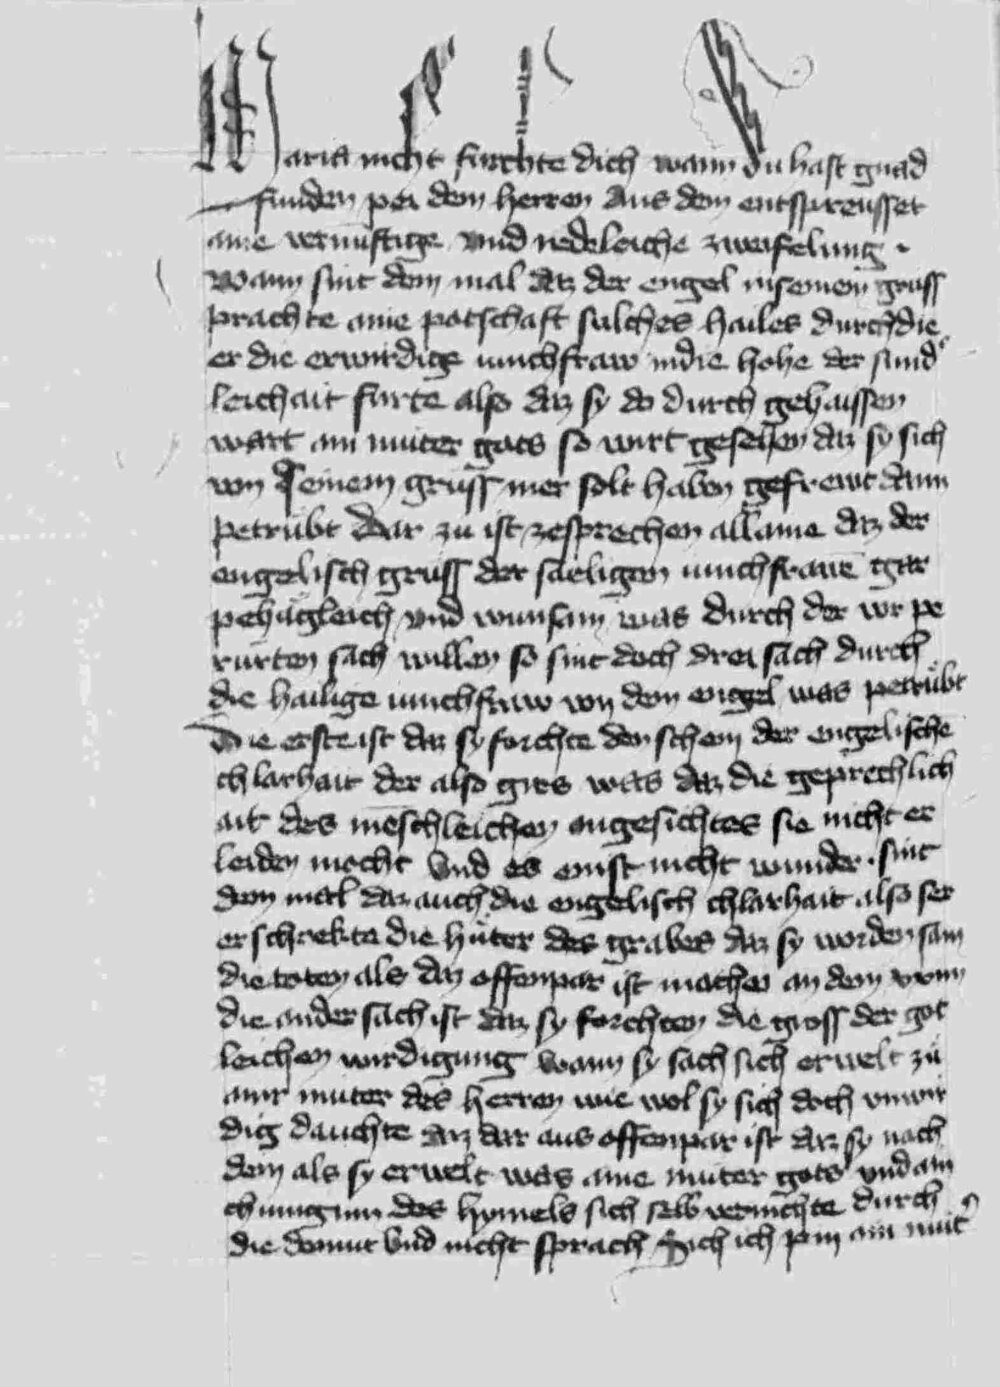 Maria nicht furchte dich wann du hast gnad
funden pei dem herren Aus dem entspreusset
aine vernuftige vnd redeleiche zweifelung
Wann sint dem mal daz der engel in seinem gruss
prachte aine potschaft sulches hailes durch die
er die erwirdige iunchfraw in die hohe der sund
leichait furte also daz sy do durch gehaissen
wart ain muter gots so wirt gesehen daz sy sich
von seinem gruss mer solt haben gefrewt dann
petrubt Dar zu ist zesprechen allaine daz der
engelisch gruss der saeligen iunchfrawe gar
pehagleich vnd wunsam was durch der vor pe
rurten sach willen so sint doch drei sach durch
die hailige iunchfraw von dem engel was petrubt
Die erste ist daz sy forchte den schein der engelische
chlarhait der also gros was daz die geprechlich
ait des menschleichen angesichtes sie nicht er
leiden mocht Vnd es enist nicht wunder sint
dem mal daz auch die engelisch chlarhait also ser
erschrekte die huter des grabes daz sy worden sam
die toten als daz offenpar ist mathei an dem
die ander sach ist daz sy forchten die gross der got
leichen wirdigung wann sy sach sich erwelt zu
ainr muter des herren wie wol sy sich doch vnwir
dig dauchte daz dar aus offenpar ist daz sy nach
dem als sy erwelt was aine muter gots vnd ain
chuniginn des hymels sich selb vernichte durch
die demut Vnd nicht sprach Sich ich pin ain mut